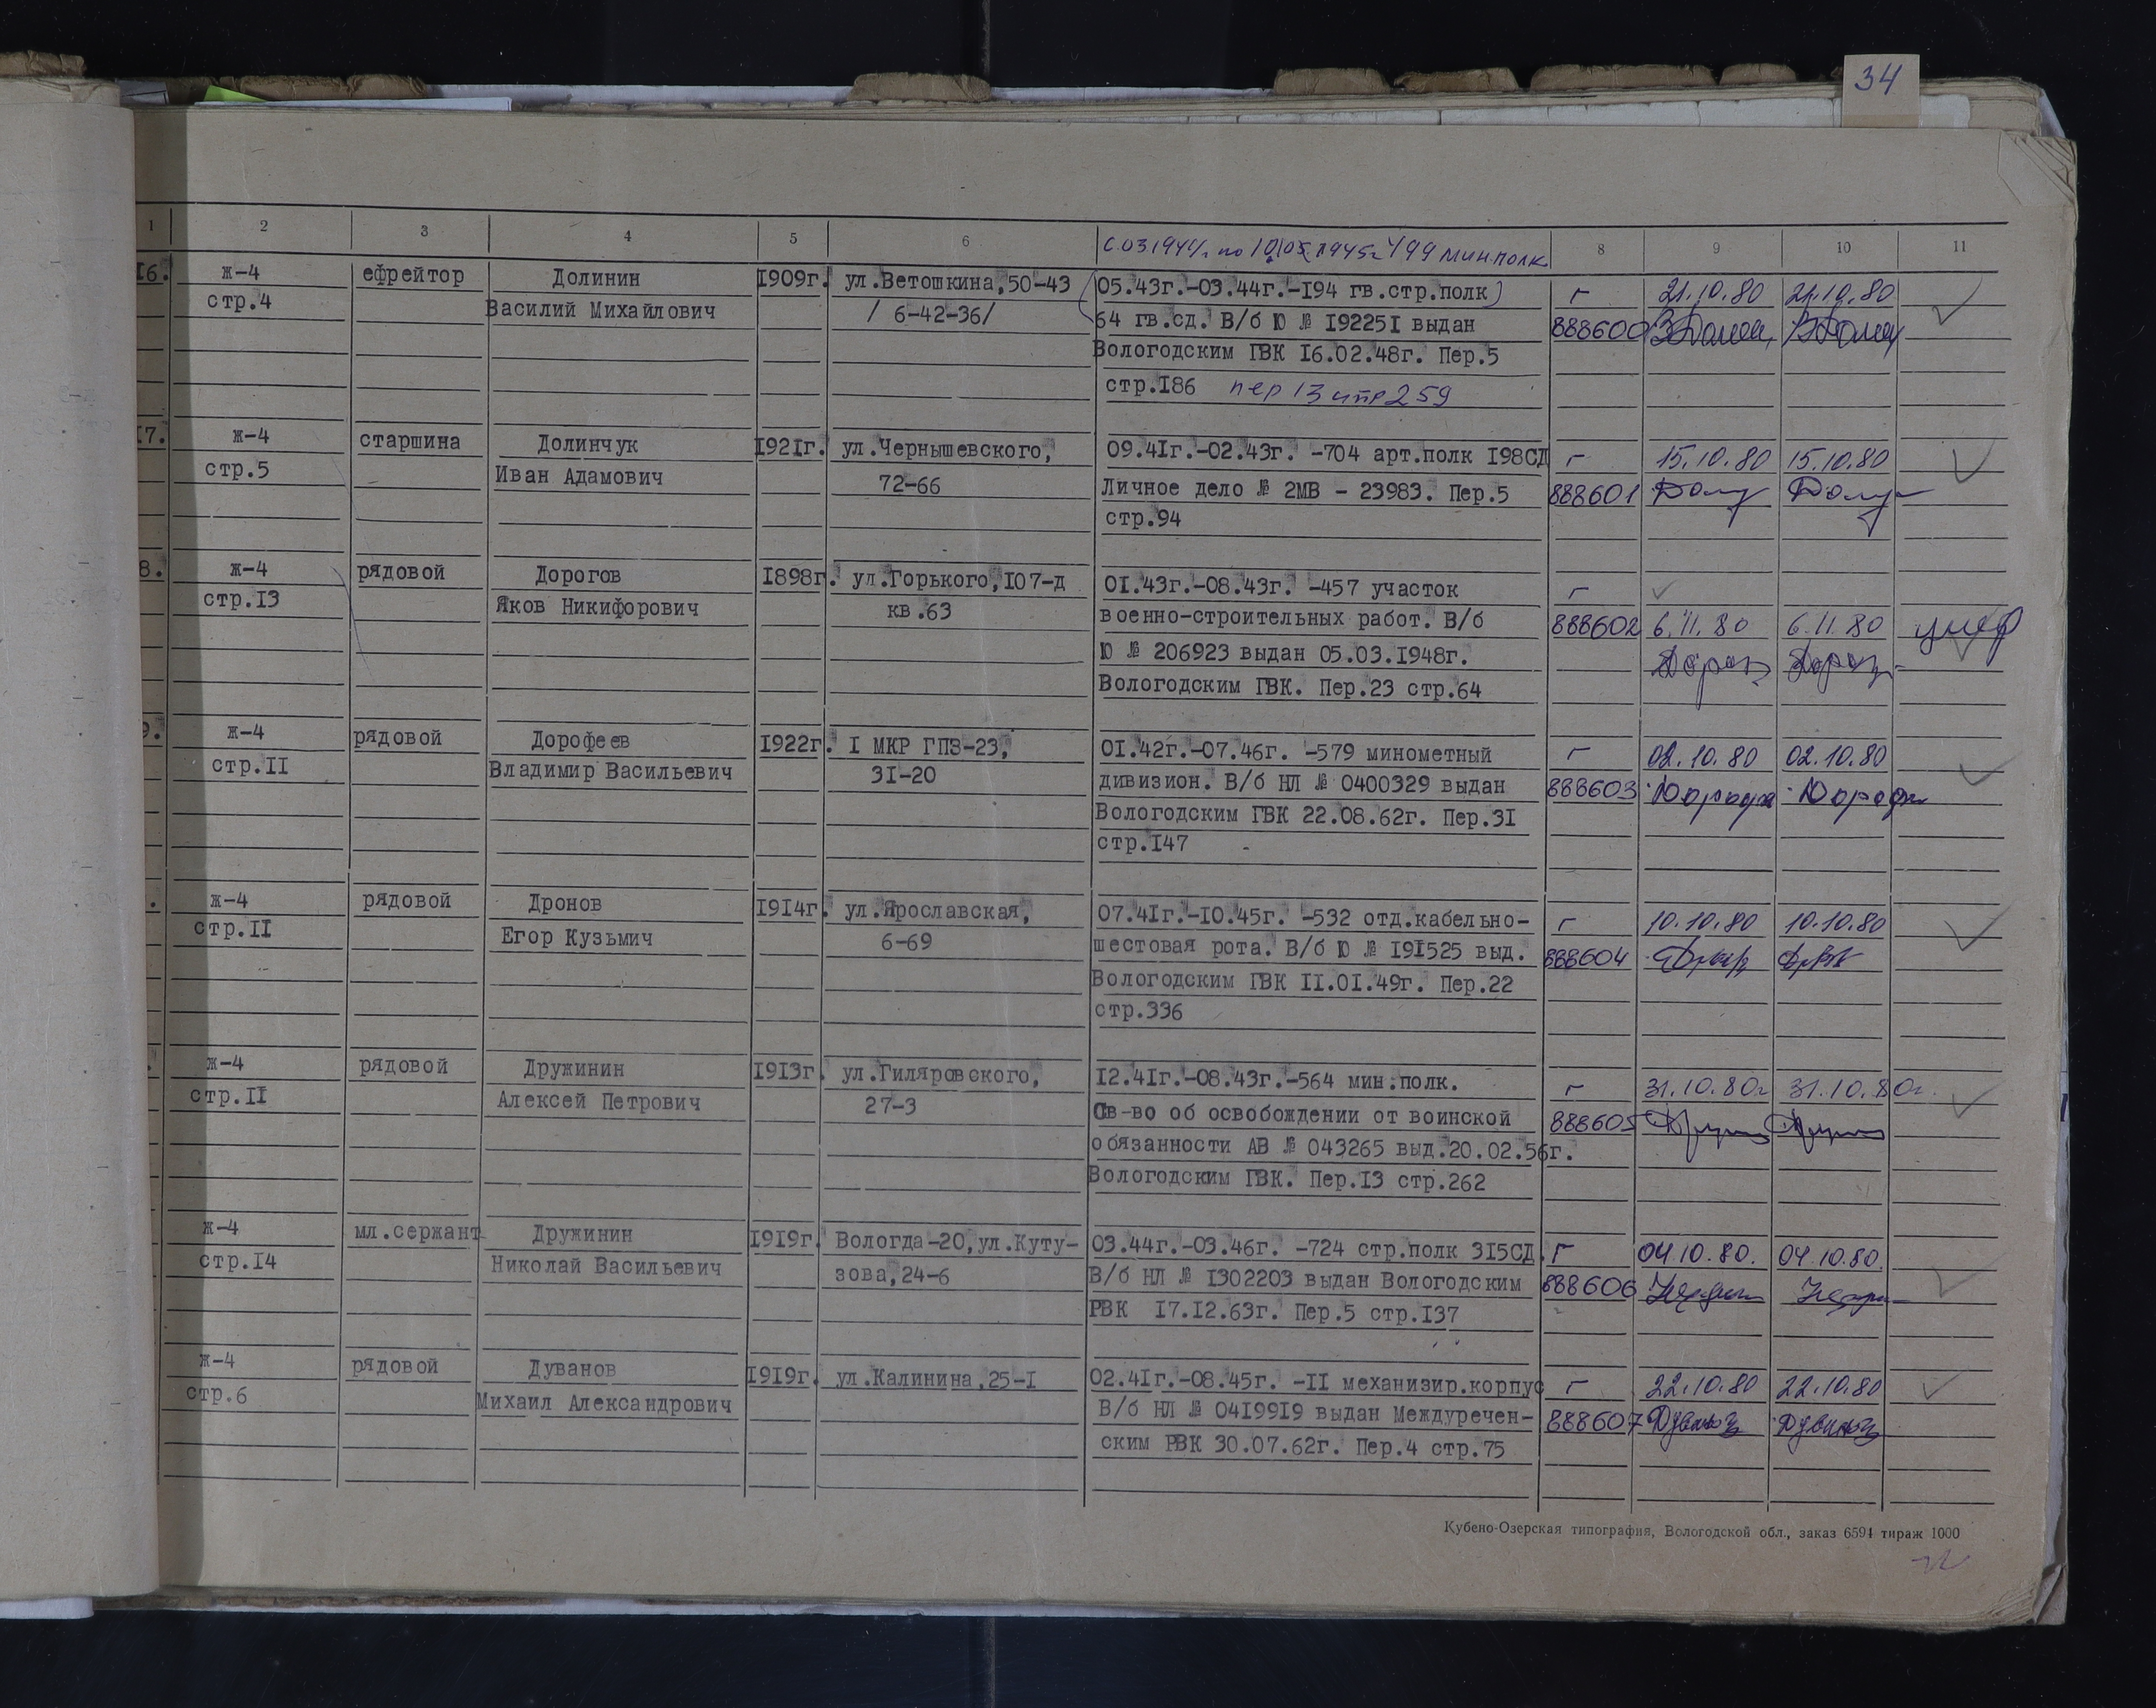 34
1 2 3 4 5 6 8 9 10 11
с 03.1944г. по 10.05.1945г. 499 мин.полк
16. ж-4 ефрейтор Долинин 1909г. ул.Ветошкина,50-43 05.43г.-03.44г.-194 гв.стр.полк г 21.10.80 21.10.80
стр.4 Василий Михайлович / 6-42-36/ 64 гв.сд. В/б Ю № 192251 выдан 888600
Вологодским ГВК 16.02.48г. Пер.5
стр.186 пер 13 стр 259
17. ж-4 старшина Долинчук 1921г. ул.Чернышевского, 09.41г.-02.43г. -704 арт.полк 198СД г 15.10.80 15.10.80
стр.5 Иван Адамович 72-66 Личное дело № 2МВ - 23983. Пер.5 888601
стр.94
8. ж-4 рядовой Дорогов 1898г. ул.Горького,107-д 01.43г.-08.43г. -457 участок г
стр.13 Яков Никифорович кв.63 военно-строительных работ. В/б 888602 6.11.80 6.11.80 умер
Ю № 206923 выдан 05.03.1948г.
Вологодским ГВК. Пер.23 стр.64
9. ж-4 рядовой Дорофеев 1922г. I МКР ГПЗ-23, 01.42г.-07.46г. -579 минометный г 02.10.80 02.10.80
стр.11 Владимир Васильевич 31-20 дивизион. В/б НЛ № 0400329 выдан 888603
Вологодским ГВК 22.08.62г. Пер.31
стр.147
. ж-4 рядовой Дронов 1914г. ул.Ярославская, 07.41г.-10.45г. -532 отд.кабельно- г 10.10.80 10.10.80
стр.11 Егор Кузьмич 6-69 шестовая рота. В/б Ю № 191525 выд. 888604
Вологодским ГВК 11.01.49г. Пер.22
стр.336
. ж-4 рядовой Дружинин 1913г. ул.Гиляровского, 12.41г.-08.43г.-564 мин.полк. г 31.10.80г 31.10.80г.
стр.11 Алексей Петрович 27-3 Св-во об освобождении от воинской 888605
обязанности АВ № 043265 выд.20.02.56г.
Вологодским ГВК. Пер.13 стр.262
ж-4 мл.сержант Дружинин 1919г. Вологда-20,ул.Куту- 03.44г.-03.46г. -724 стр.полк 315СД. г 04.10.80. 04.10.80.
стр.14 Николай Васильевич зова,24-6 В/б НЛ № 1302203 выдан Вологодским 888606
РВК 17.12.63г. Пер.5 стр.137
ж-4 рядовой Дуванов 1919г. ул.Калинина,25-1 02.41г.-08.45г. -11 механизир.корпус г 22.10.80 22.10.80
стр.6 Михаил Александрович В/б НЛ № 0419919 выдан Междуречен- 888607
ским РВК 30.07.62г. Пер.4 стр.75
Кубено-Озерская типография, Вологодской обл., заказ 6594 тираж 1000